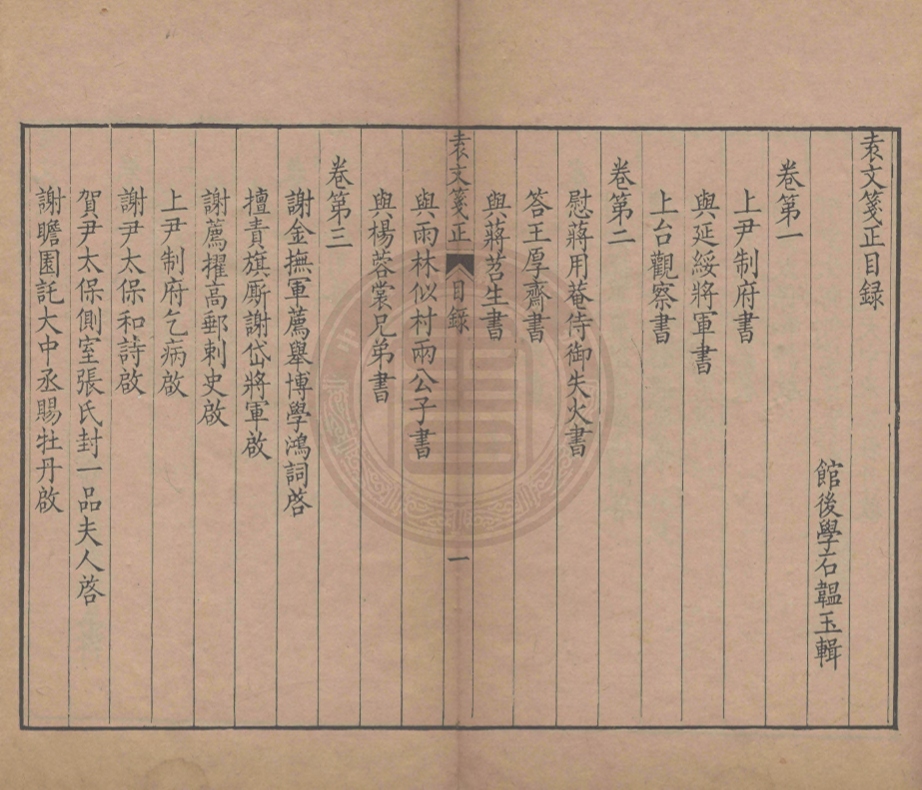 袁文箋正目録
館後學石韞玉輯
卷第一
上尹制府書
與延綏將軍書
上台觀察書
卷第二
慰蔣用菴侍御失火書
答王厚齋書
與蔣苕生書
袁文箋正 目録 一
與兩林似村兩公子書
與楊蓉裳兄弟書
卷第三
謝金撫軍薦舉博學鴻詞啓
擅責旗厮謝岱將軍啟
謝薦擢高郵刺史啟
上尹制府乞病啟
謝尹太保和詩啟
賀尹太保側室張氏封一品夫人啓
謝瞻園託大中丞賜牡丹啟